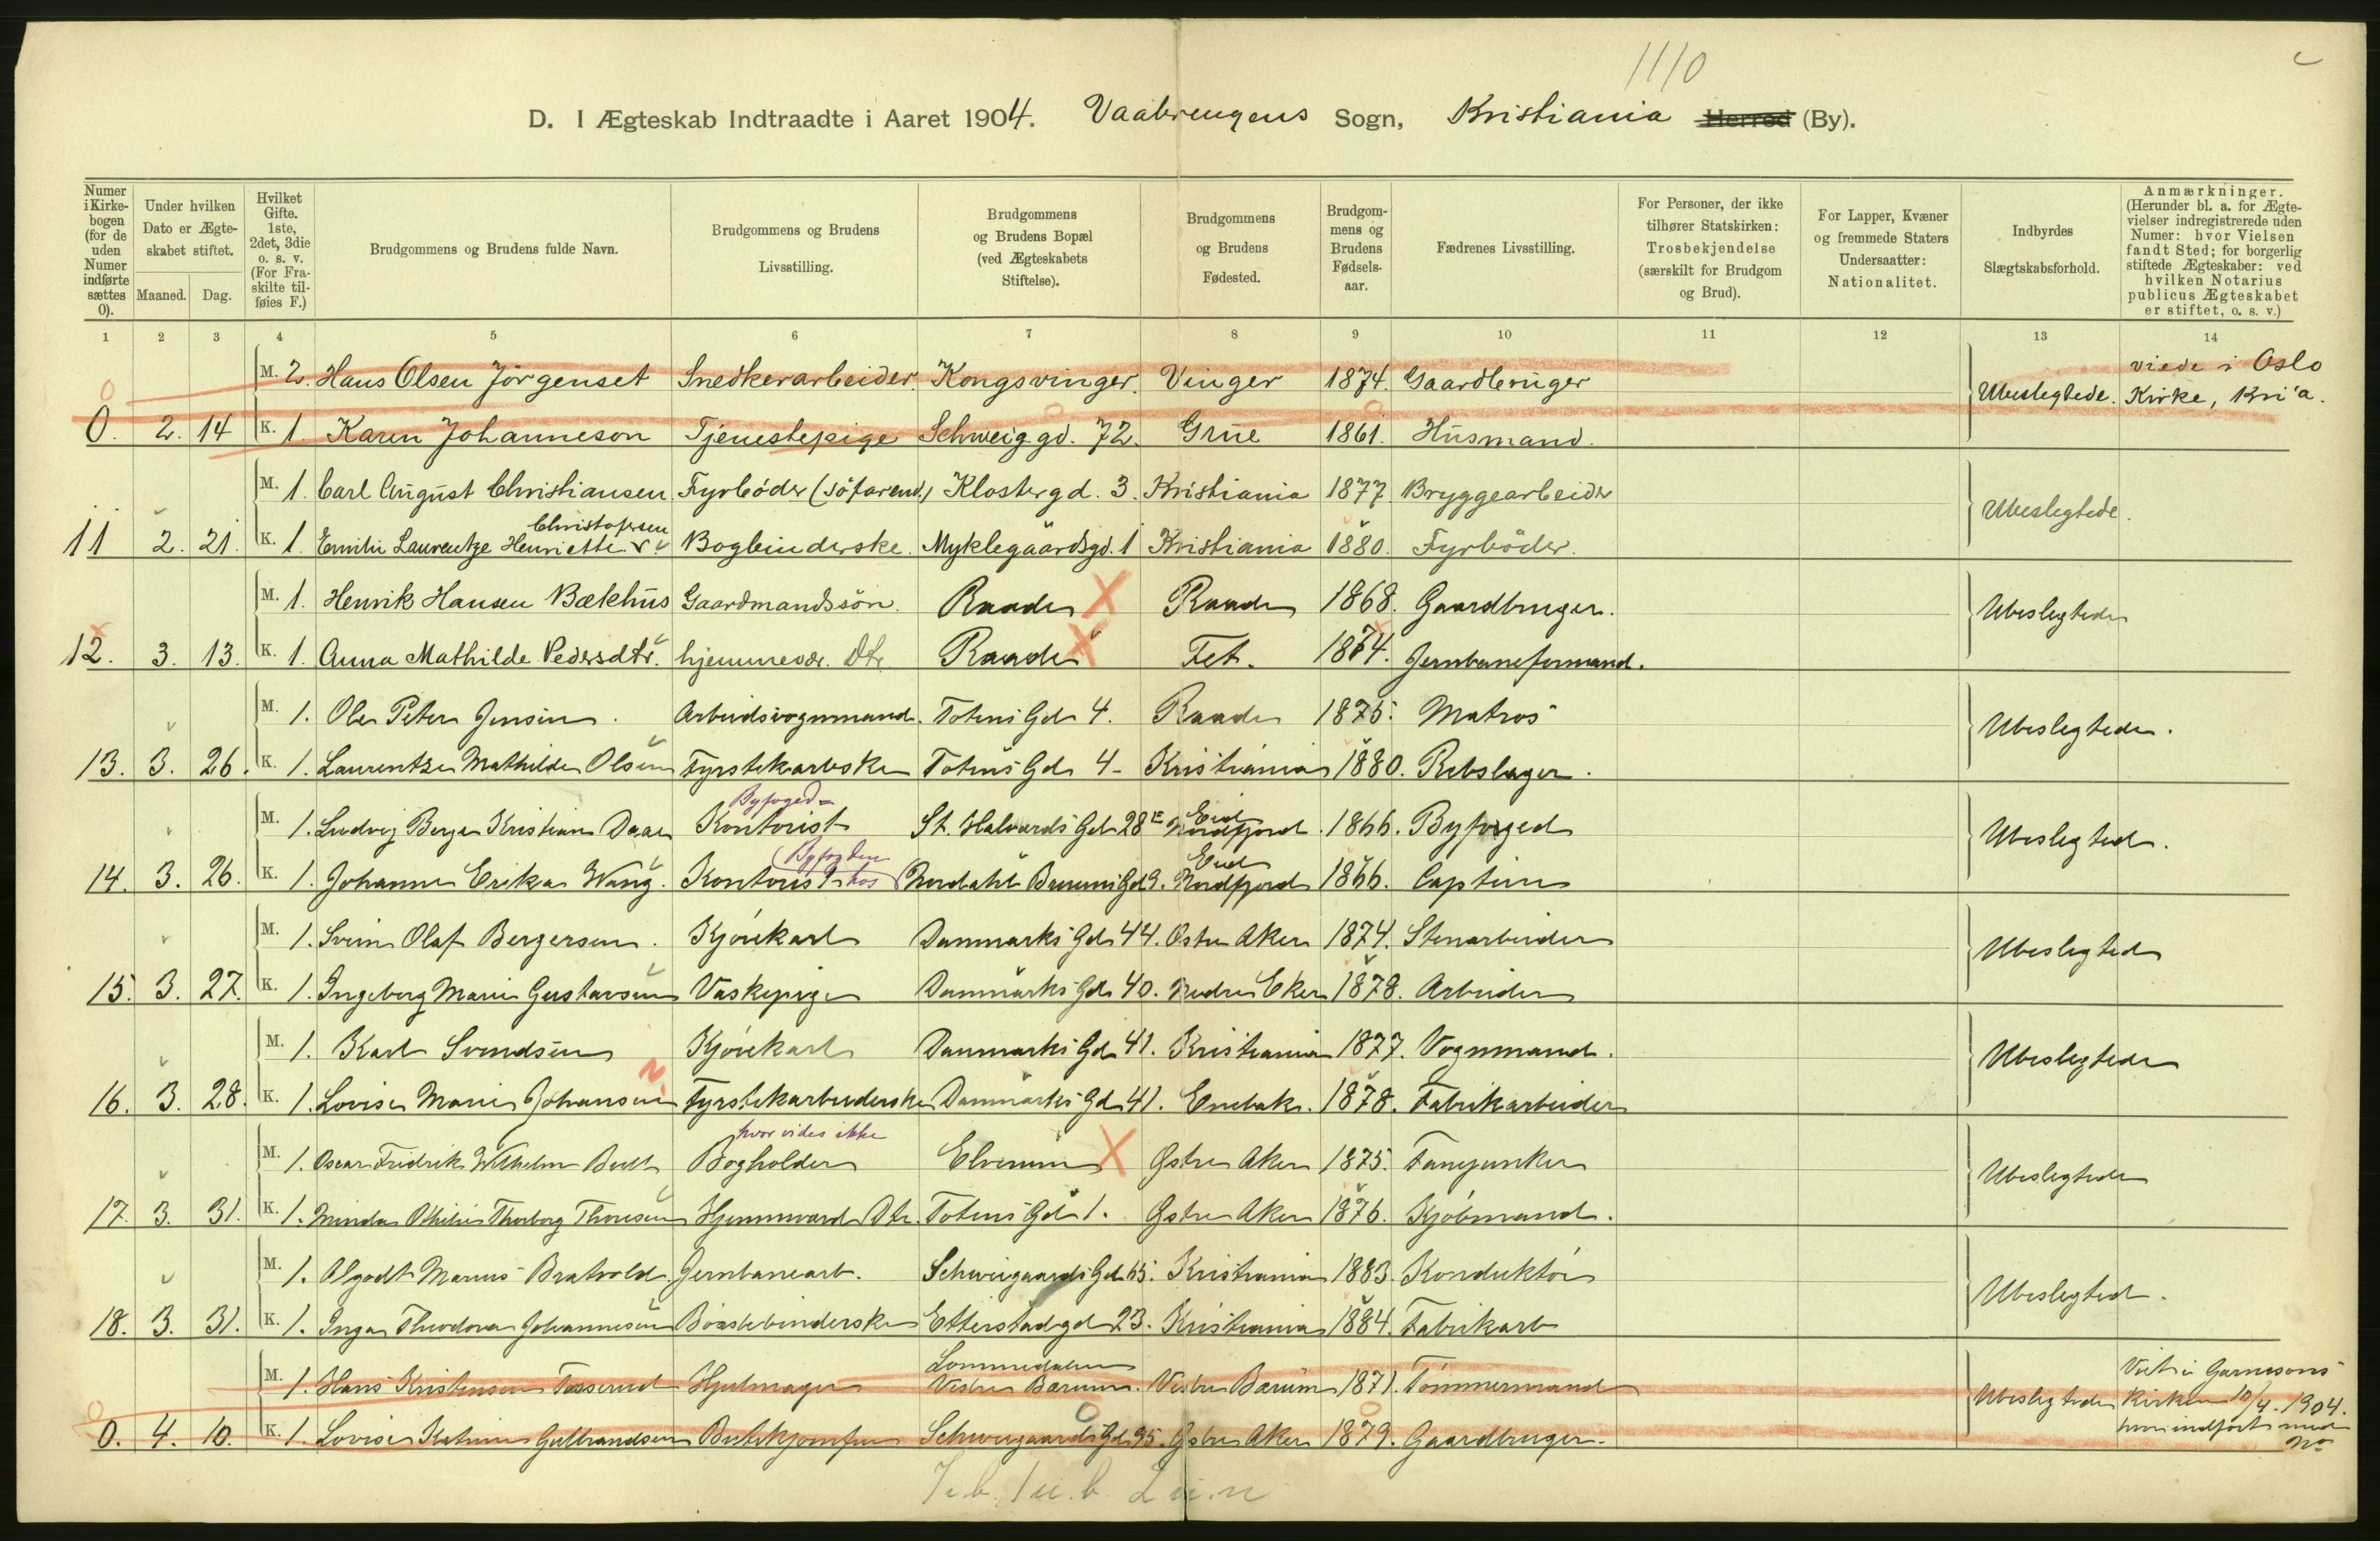 1110
D. I Ægteskab Indtraadte i Aaret 1904. Vaalerengens Sogn, Kristiania Herred (By).
Numer i Kirkebogen (for de uden Numer indførte sættes 0).
Under hvilken Dato er Ægteskabet stiftet.
Maaned. Dag.
Hvilket Gifte. 1ste, 2det, 3die o. s. v. (For Fraskilte tilføies F.)
Brudgommens og Brudens fulde Navn.
Brudgommens og Brudens Livsstilling.
Brudgommens og Brudens Bopæl (ved Ægteskabets Stiftelse).
Brudgommens og Brudens Fødested.
Brudgommens og Brudens Fødselsaar.
Fædrenes Livsstilling.
For Personer, der ikke tilhører Statskirken: Trosbekjendelse (særskilt for Brudgom og Brud).
For Lapper, Kvæner og fremmede Staters Undersaatter: Nationalitet.
Indbyrdes Slægtskabsforhold.
Anmærkninger. (Herunder bl. a. for Ægtevielser indregistrerede uden Numer: hvor Vielsen fandt Sted; for borgerlig stiftede Ægteskaber: ved hvilken Notarius publicus Ægteskabet er stiftet, o. s. v.)
1 2 3 4 5 6 7 8 9 10 11 12 13 14
M. 2. Hans Olsen Jörgenset Snedkerarbeider. Kongsvinger. Vinger 1874. Gaardbruger Ubeslegtede. viede i Oslo Kirke, Kri'a.
0. 2. 14 K. 1. Karen Johanneson Tjenestepige Schweig.gd. 72. Grue 1861. Husmand.
M. 1. Carl August Christiansen Fyrböder (söfarend.) Klostergd. 3. Kristiania 1877 Bryggearbeider Ubeslegtede.
Christofersen
11 2. 21. K. 1. Emilie Laurentze Henriette Bogbinderske. Myklegaardsgd. 1 Kristiania 1880. Fyrböder.
M. 1. Henrik Hansen Bækhus Gaardmandssön. Raade X Raade 1868. Gaardbruger. Ubeslegtede
12. 3. 13. K. 1. Anna Mathilde Pedersdtr. hjemmevær. Dtr. Raade X Fet. 1874. Jernbaneformand.
M. 1. Ole Peter Jensen. Arbeidsvognmand. Totens Gde 4. Raade 1875. Matros Ubeslegtede.
13. 3. 26. K. 1. Laurentze Mathilde Olsen Fyrstikarbske Totens Gde 4 Kristiania 1880. Rebslager.
Byfoged= Eid
M. 1. Ludvig Berge Kristian Daae Kontorist St. Halvards Gde 28 E Nordfjord. 1866. Byfoged Ubeslegted.
Byfogden Eid
14. 3. 26. K. 1. Johanne Erika Wang. Kontorist hos Nordahl Bruuns Gd 9. Nordfjord 1866. Captein
M. 1. Svein Olaf Bergersen. Kjörekarl Danmarks Gde 44. Östre Aker 1874. Stenarbeider Ubeslegted
15. 3. 27. K. 1. Ingeborg Marie Gustavsen Vaskepige Danmarks Gde 40. Nedre Eker 1878. Arbeider
M. 1. Karl Svendsen Kjörekarl Danmarks Gde 41. Kristiania 1877. Vognmand. Ubeslegtede
16. 3. 28. K. 1. Lovise Marie Johansen Fyrstikarbeiderske Danmarks Gde 41. Enebak. 1878. Fabrikarbeider
hvor vides ikke
M. 1. Oscar Fredrik Wilhelm Bull Bogholder Elverum X Østre Aker 1875. Fanejunker Ubeslegtede
17. 3. 31. K. 1. Minda Othilie Thorborg Thoresen Hjemmevær. Dtr. Totens Gde 1. Østre Aker 1876. Kjöbmand.
M. 1. Algodt Marius Bratvold. Jernbanearb. Schweigaards Gde 65. Kristiania 1883. Konduktör Ubeslegted.
18. 3. 31. K. 1. Inga Theodora Johannesen Börstebinderske Etterstadgde 23. Kristiania 1884. Fabrikarb
Lommedalen
M. 1. Hans Kristensen Tosserud Hjulmager Vestre Bærum. Vestre Bærum 1871. Tömmermand Ubeslegtede Viet i Garnisons Kirken 10/4. 1904. hvor indfört med No
0. 4. 10. K. 1. Lovise Katrine Gulbrandsen Butikjomfru Schweigaards Gde 95. Østre Aker 1879. Gaardbruger.